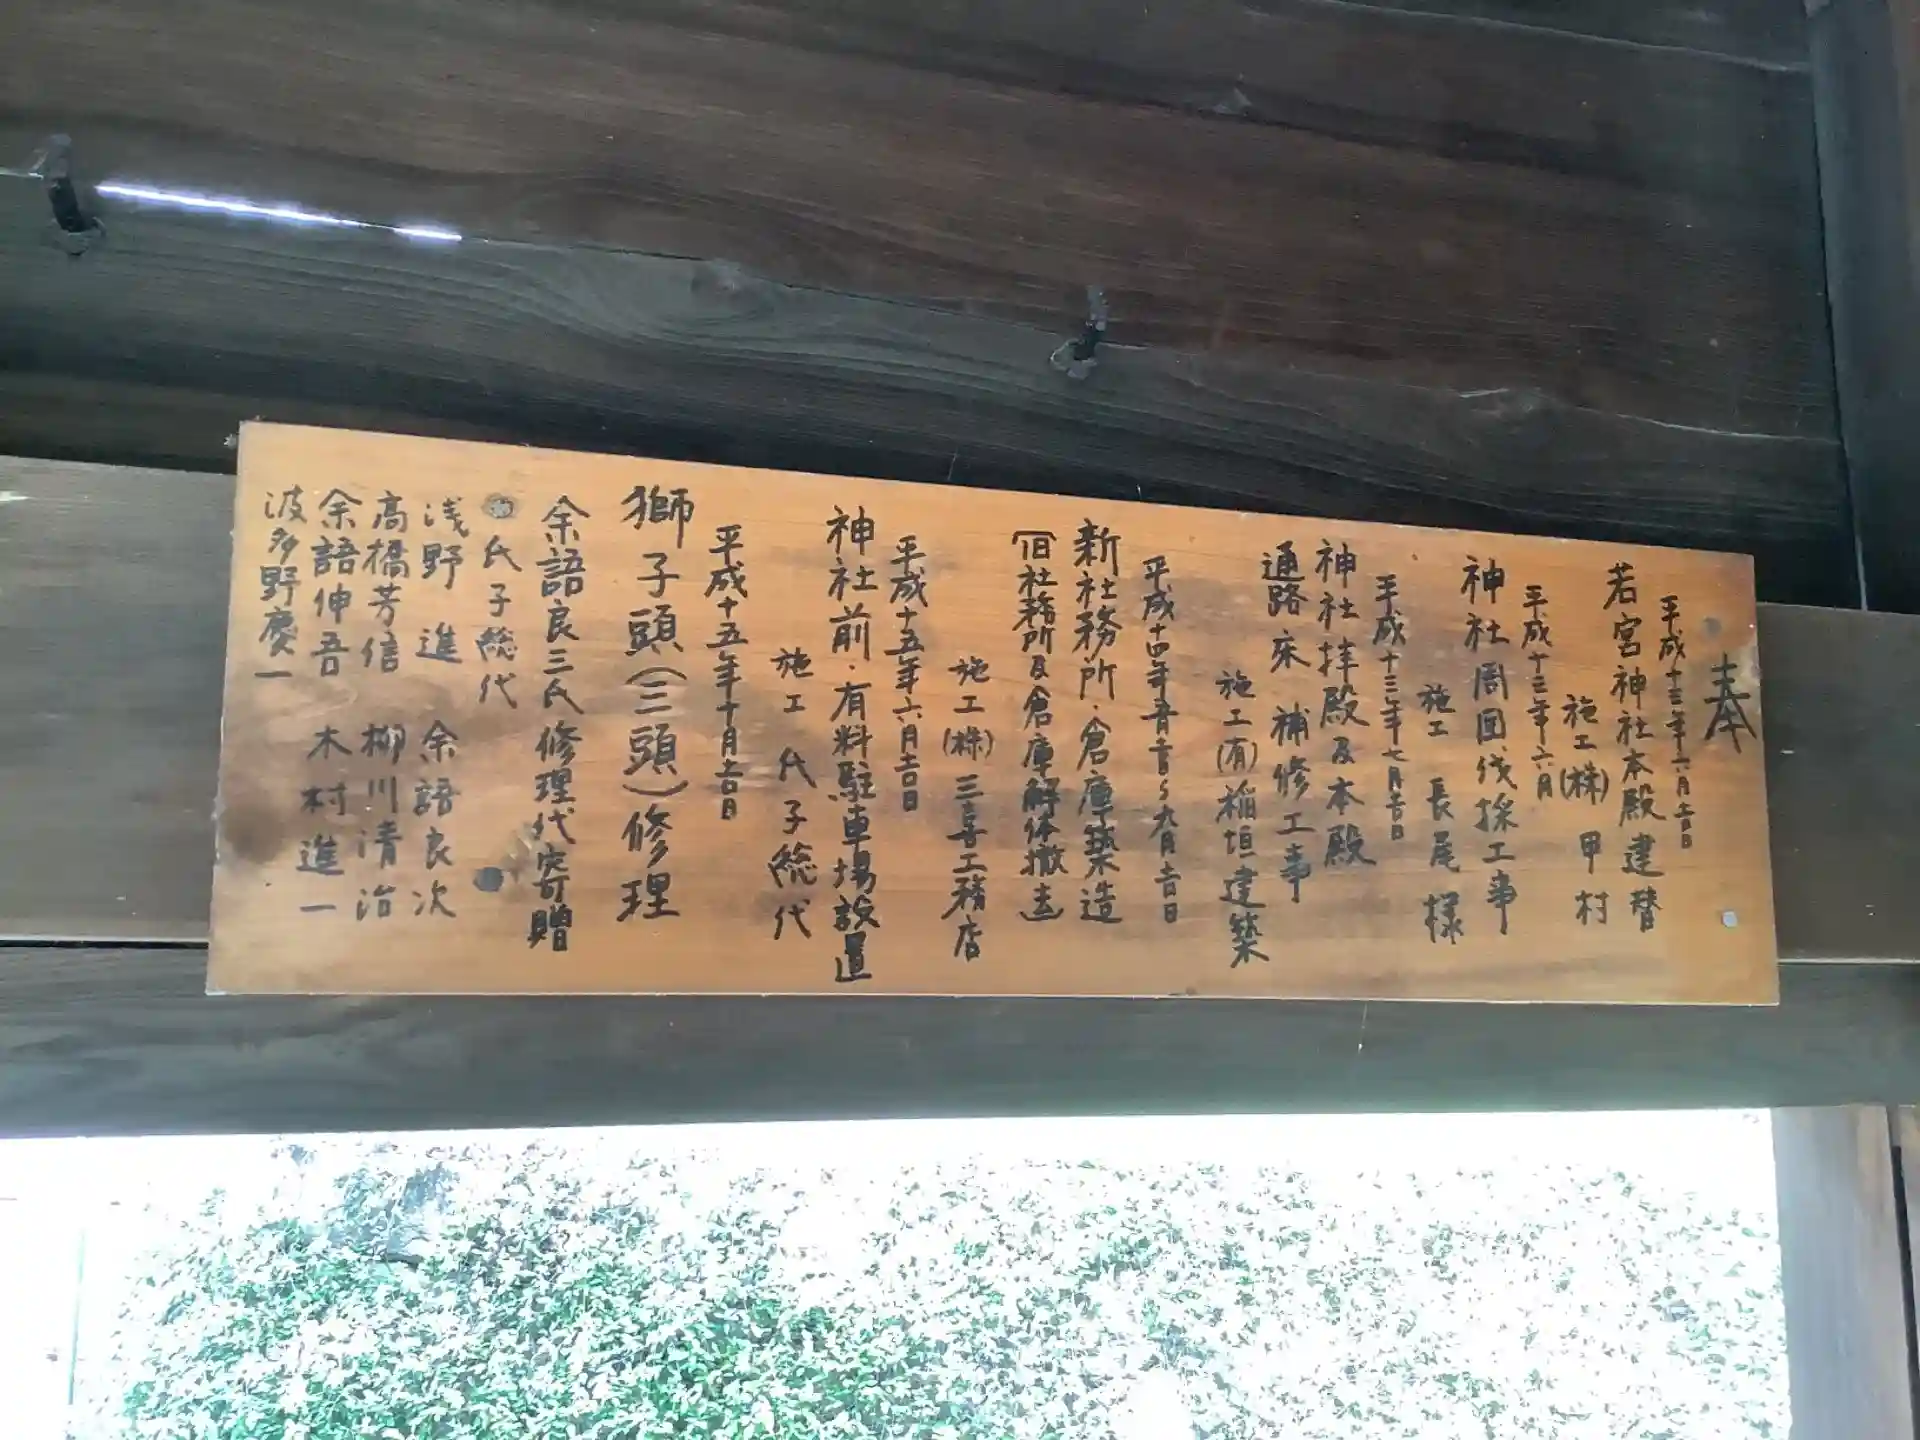 奉
平成十三年六月吉日
若宮神社本殿建替
施工(株)甲村
平成十三年六月
神社周囲伐採工事
施工 長尾様
平成十三年七月吉日
神社拝殿及本殿
通路床補修工事
施工(有)稲垣建築
平成十四年 九月吉日
新社務所・倉庫築造
(旧社務所及倉庫解体撤去
施工(株)三喜工務店
平成十五年六月吉日
神社前・有料駐車場設置
施工 氏子総代
平成十五年十月吉日
獅子頭(三頭)修理
余語良三氏修理代寄贈
氏子総代
浅野 進 余語良次
高橋芳信 柳川清治
余語伸吾 木村進一
波多野慶一